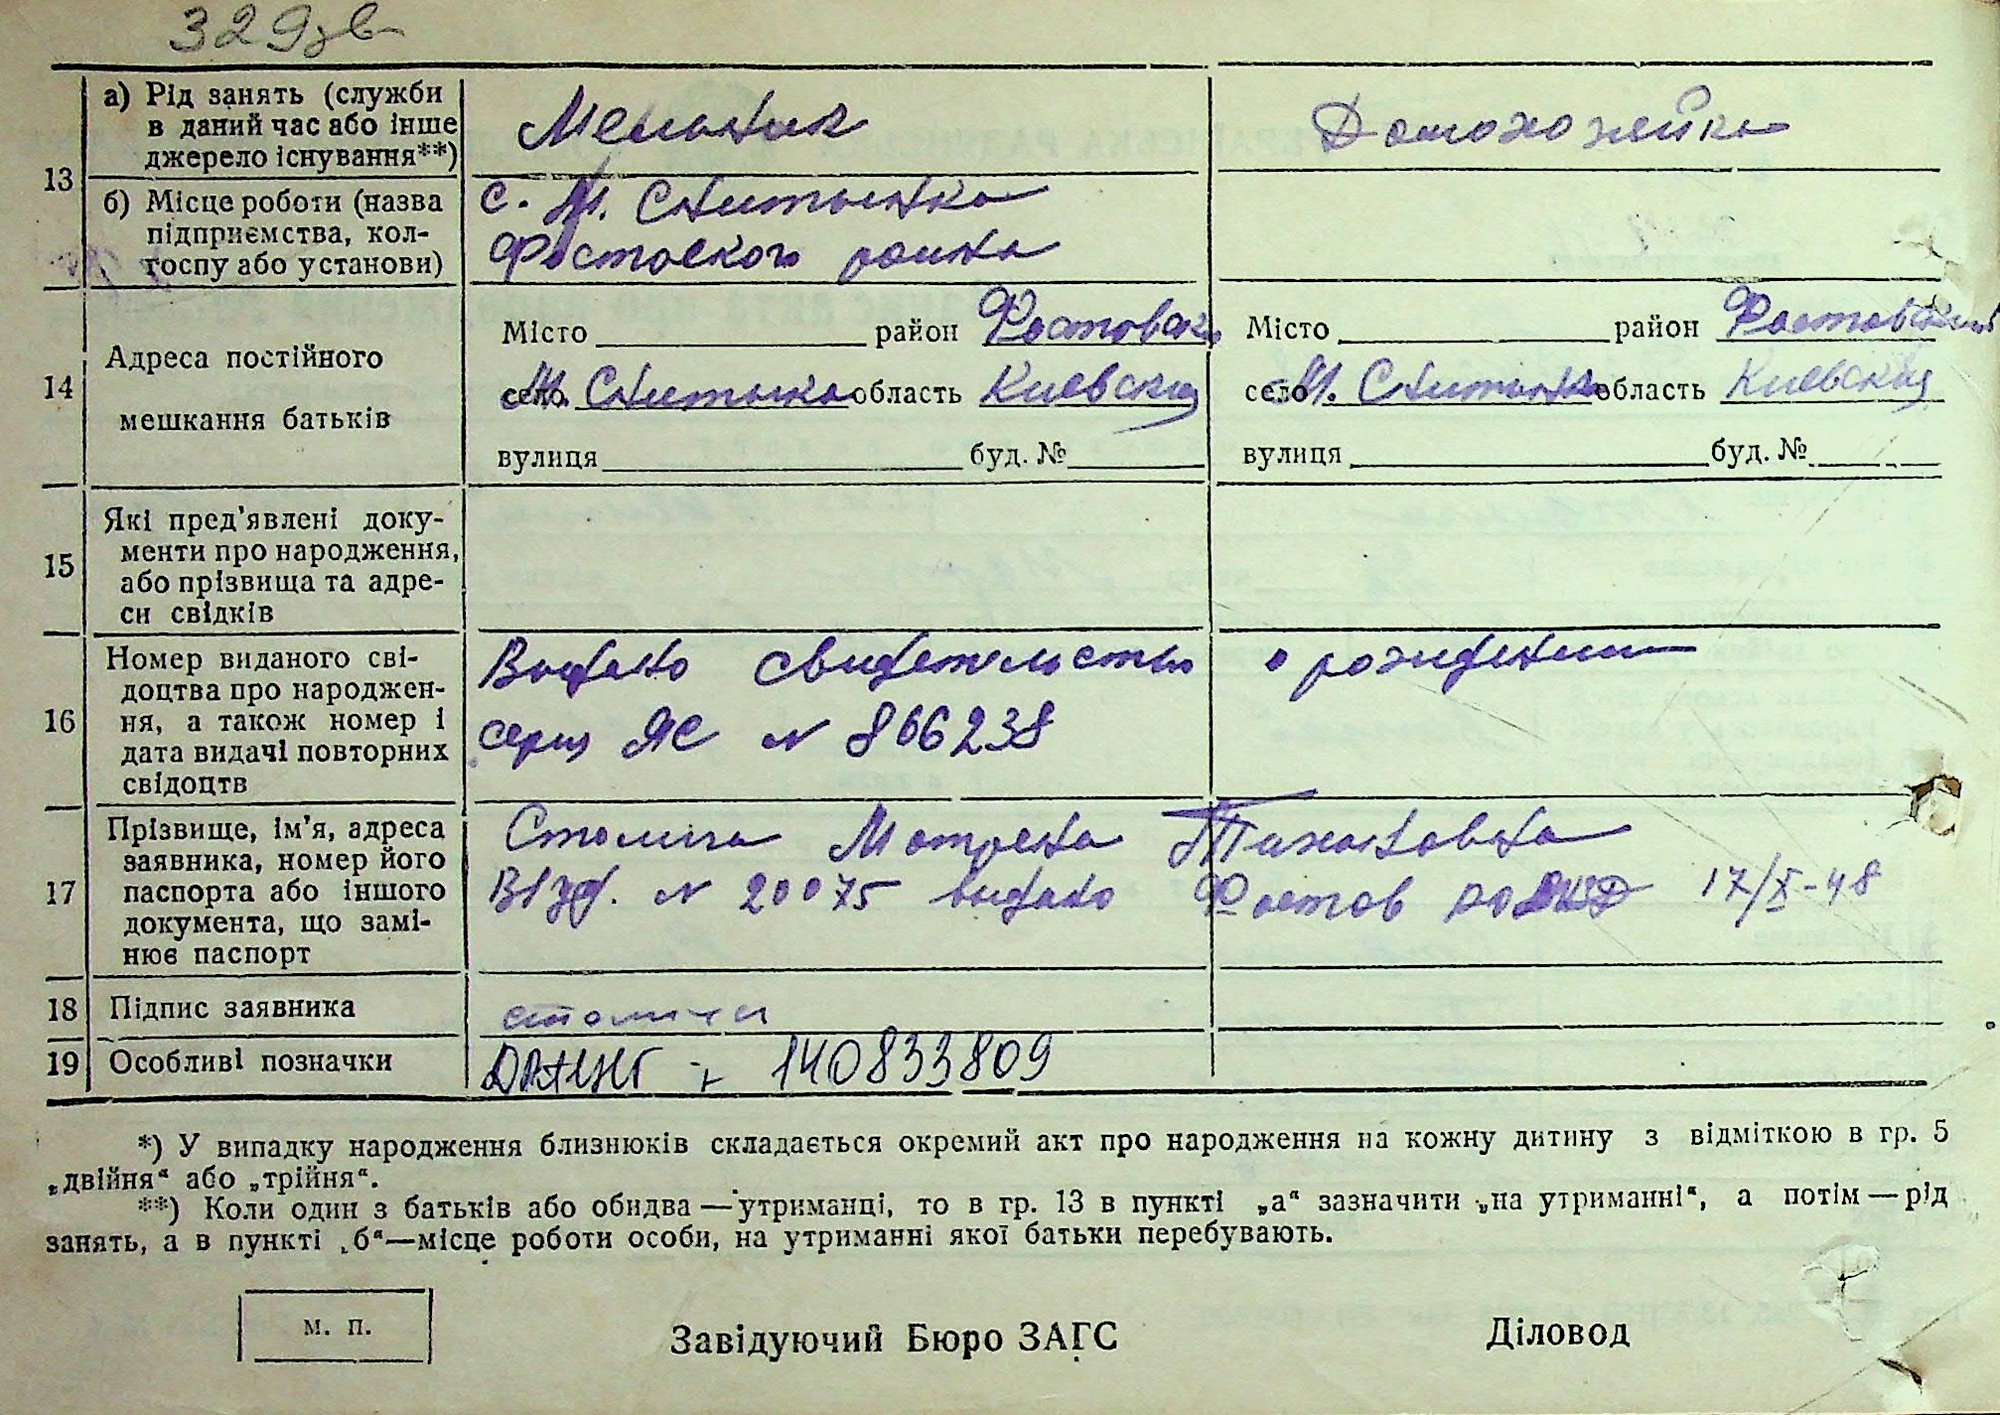 329зв
13 а) Рід занять (служби в даний час або інше джерело існування**) Мельник Домохозяйка
б) Місце роботи (назва підприємства, колгоспу або установи) с. М. Снитынка
Фастовского района
14 Адреса постійного мешкання батьків
Місто район Фастовский Місто район Фастовский
село М. Снитынка область Киевская село М. Снитынка область Киевская
вулиця буд. № вулиця буд. №
15 Які пред'явлені документи про народження, або прізвища та адреси свідків
16 Номер виданого свідоцтва про народження, а також номер і дата видачі повторних свідоцтв
Выдано свидетельство о рождении
серия ЯС N 866238
17 Прізвище, ім'я, адреса заявника, номер його паспорта або іншого документа, що замінює паспорт
Столица Матрена
N 20075 выдано Фастов 17/X-48
18 Підпис заявника столица
19 Особливі позначки 140833809
*) У випадку народження близнюків складається окремий акт про народження на кожну дитину з відміткою в гр. 5
„двійня“ або „трійня“.
**) Коли один з батьків або обидва — утриманці, то в гр. 13 в пункті „а“ зазначити „на утриманні“, а потім — рід
занять, а в пункті „б“—місце роботи особи, на утриманні якої батьки перебувають.
м. п.
Завідуючий Бюро ЗАГС Діловод